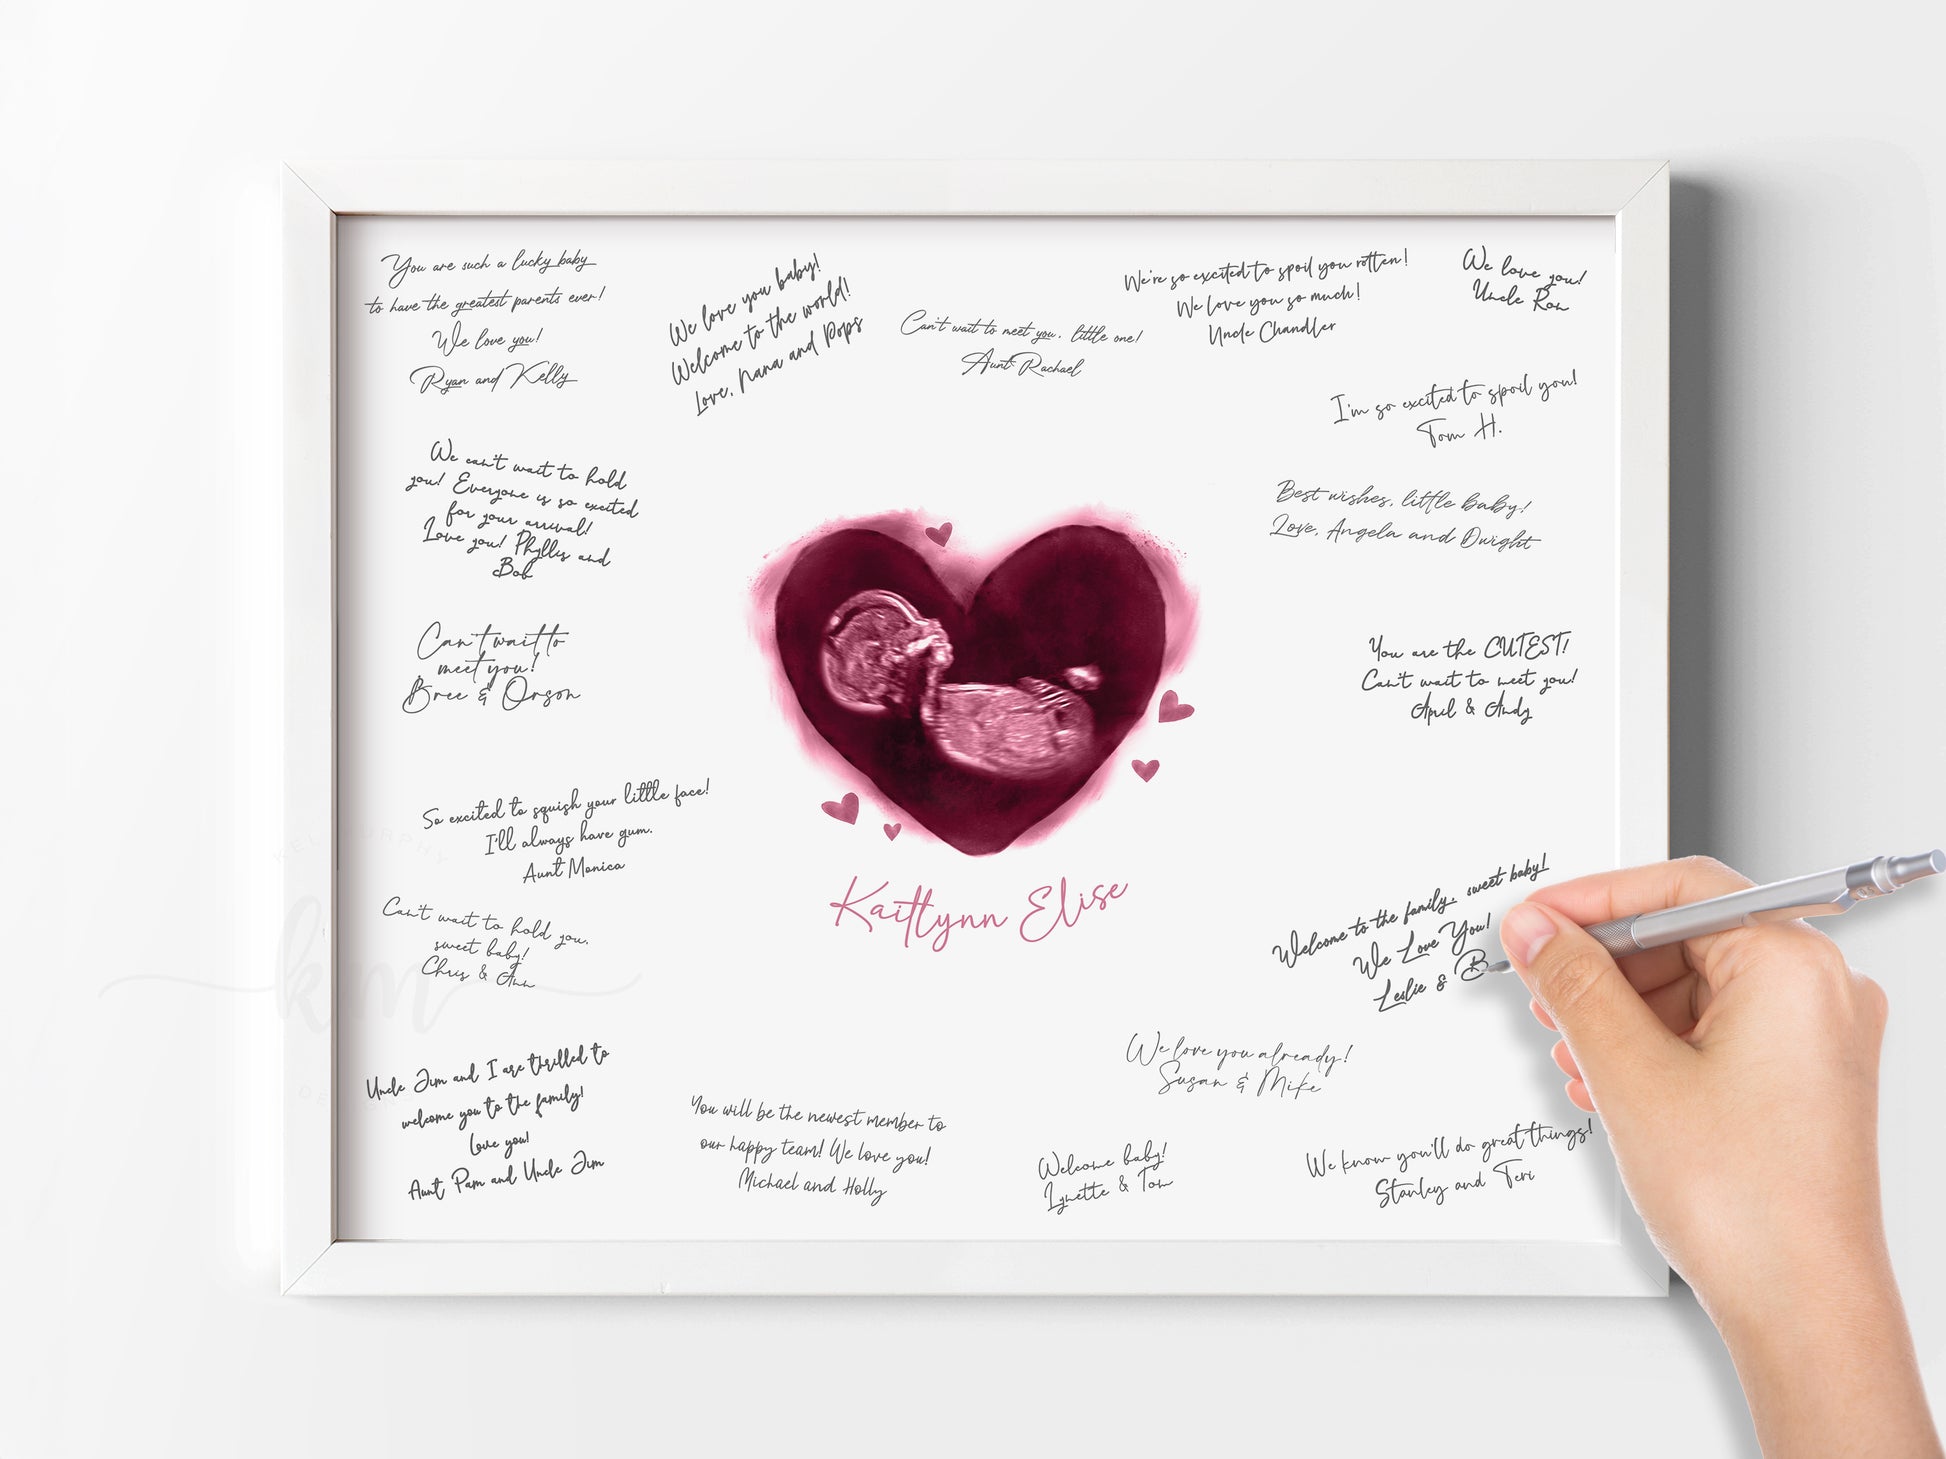 You are such a lucky baby
to have the greatest parents ever!
We love you!
Ryan and Kelly
We love you baby!
Welcome to the world!
Love, Nana and Pops
Can't wait to meet you, little one!
Aunt Rachael
We're so excited to spoil you rotten!
We love you so much!
Uncle Chandler
We love you!
Uncle Ron
I'm so excited to spoil you!
Tom H.
We can't wait to hold
you! Everyone is so excited
for your arrival!
Love you! Phyllis and
Bob
Best wishes, little baby!
Love, Angela and Dwight
Can't wait to
meet you!
Bree & Orson
You are the CUTEST!
Can't wait to meet you!
April & Andy
So excited to squish your little face!
I'll always have gum.
Aunt Monica
Kaitlynn Elise
Can't wait to hold you,
sweet baby!
Chris & Ann
Welcome to the family, sweet baby!
We Love You!
Leslie & B
Uncle Jim and I are thrilled to
welcome you to the family!
Love you!
Aunt Pam and Uncle Jim
You will be the newest member to
our happy team! We love you!
Michael and Holly
We love you already!
Susan & Mike
Welcome baby!
Lynette & Tom
We know you'll do great things!
Stanley and Teri
km